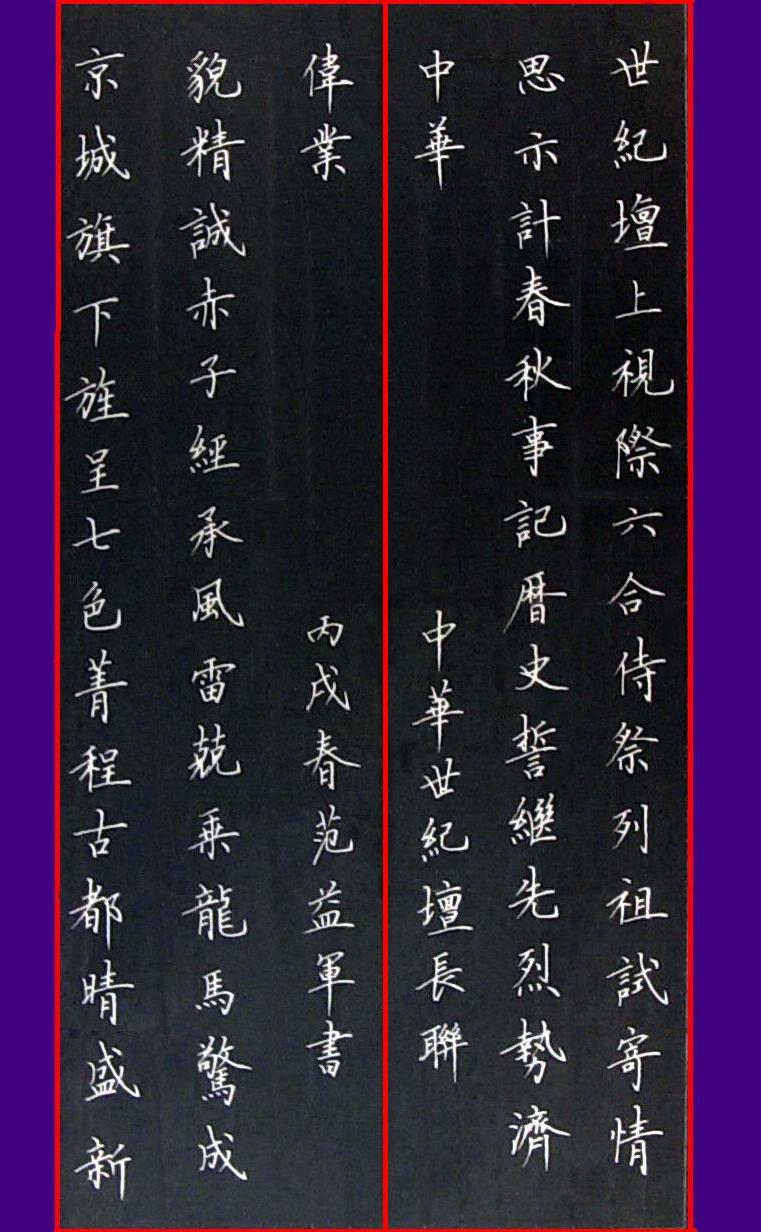 世紀壇上視際六合侍祭列祖試寄情
思示計春秋事記曆史誓繼先烈勢濟
中華
中華世紀壇長聯
京城旗下旌呈七色菁程古都晴盛新
貌精誠赤子經承風雷兢乘龍馬驚成
偉業
丙戌春范益軍書